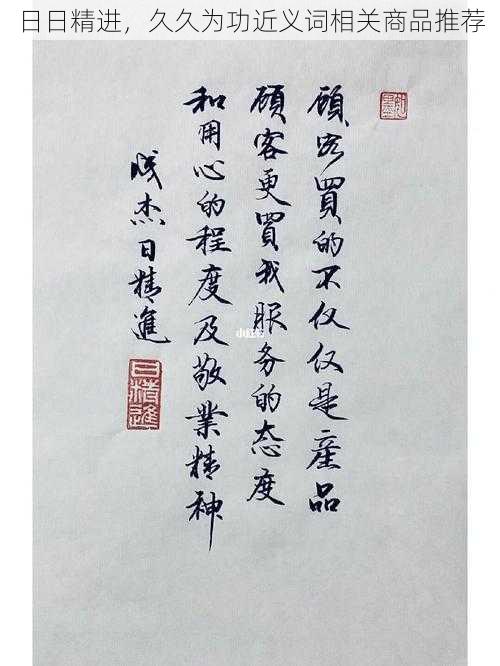 日日精进，久久为功近义词相关商品推荐
顾客買的不仅仅是産品
顾客更買我服务的态度
和用心的程度及敬業精神
成杰日精進
日精進
小红书